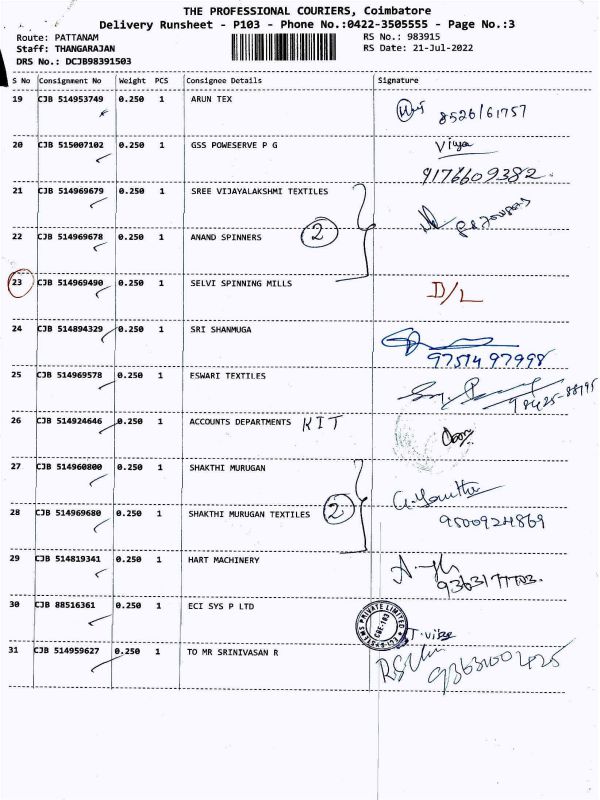 THE PROFESSIONAL COURIERS, Coimbatore
Delivery Runsheet - P103 - Phone No.:0422-3505555 - Page No.:3
Route: PATTANAM RS No.: 983915
Staff: THANGARAJAN RS Date: 21-Jul-2022
DRS No.: DCJB98391503
S No Consignment No Weight PCS Consignee Details Signature
19 CJB 514953749 0.250 1 ARUN TEX
20 CJB 515007102 0.250 1 GSS POWESERVE P G
9176609382
21 CJB 514969679 0.250 1 SREE VIJAYALAKSHMI TEXTILES
2
22 CJB 514969678 0.250 1 ANAND SPINNERS
23 CJB 514969490 0.250 1 SELVI SPINNING MILLS D/L
24 CJB 514894329 0.250 1 SRI SHANMUGA
97514 97998
25 CJB 514969578 0.250 1 ESWARI TEXTILES
26 CJB 514924646 0.250 1 ACCOUNTS DEPARTMENTS KIT
27 CJB 514960800 0.250 1 SHAKTHI MURUGAN
28 CJB 514969680 0.250 1 SHAKTHI MURUGAN TEXTILES 2
9500924869
29 CJB 514819341 0.250 1 HART MACHINERY
30 CJB 88516361 0.250 1 ECI SYS P LTD
31 CJB 514959627 0.250 1 TO MR SRINIVASAN R